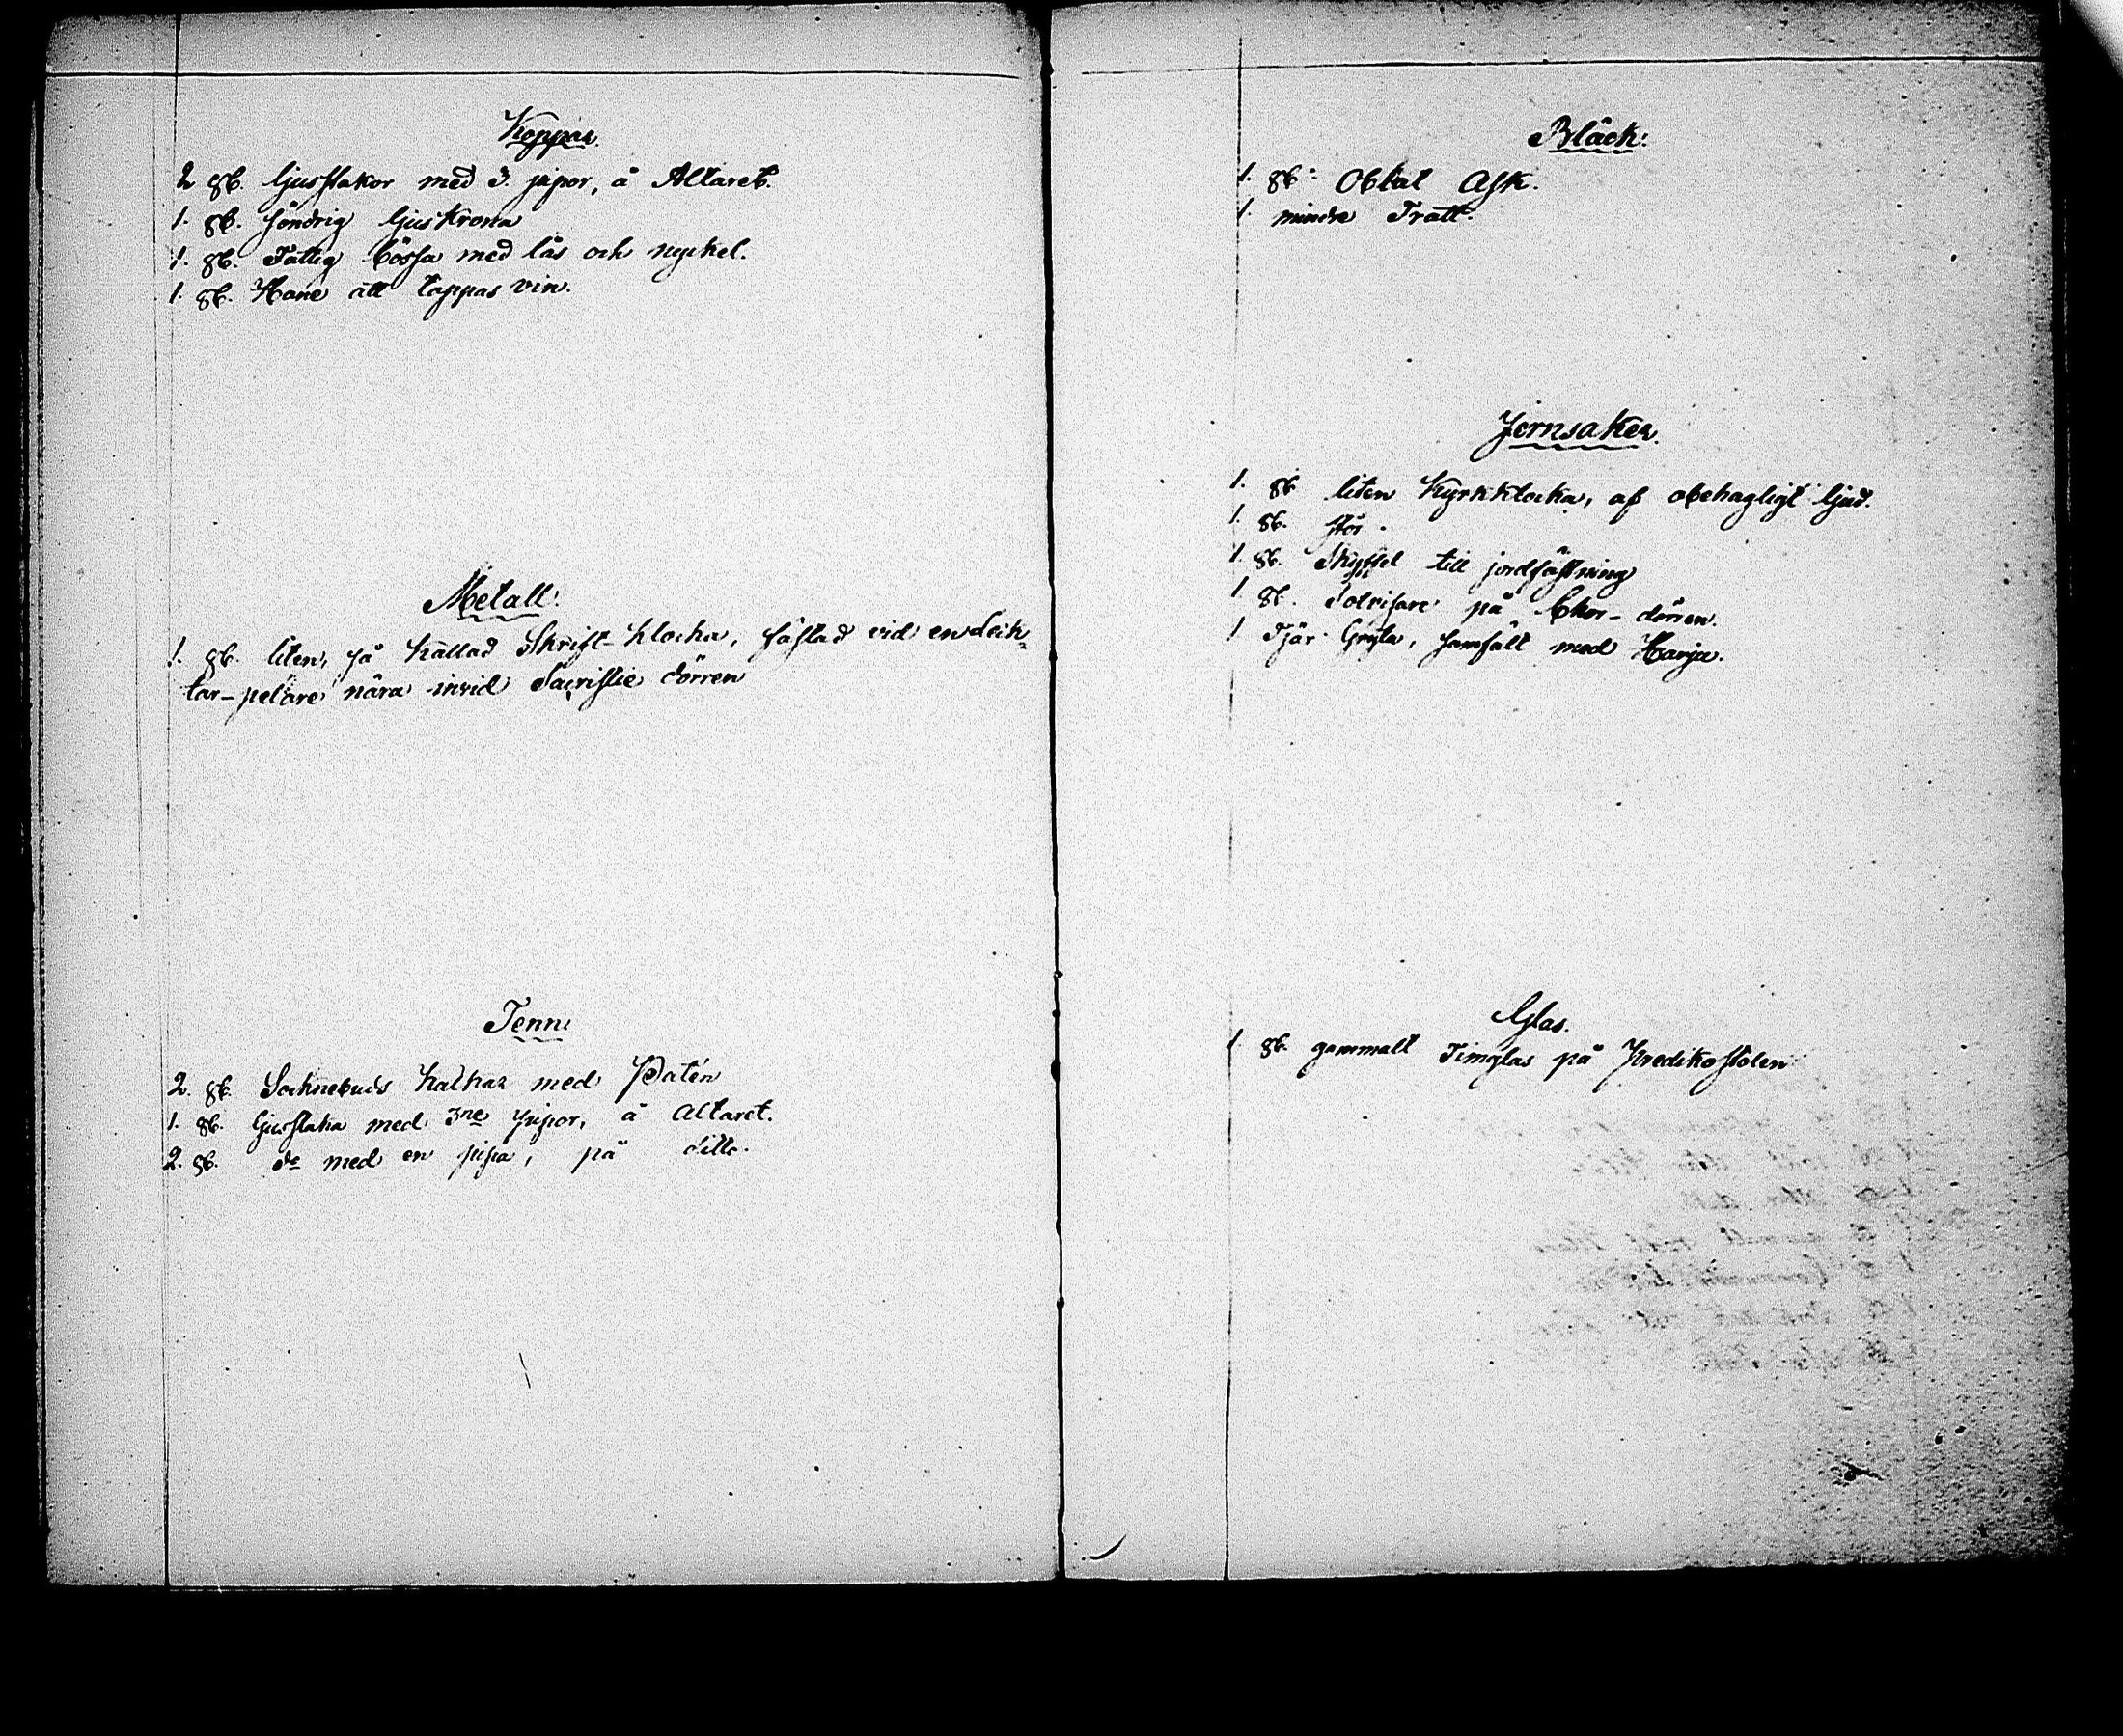 Koppar.
2 st. ljusstakor med 3. pipor, å Altaret.
1. st. söndrig ljuskrona
1. st. Fattig bössa med lås och nyckel.
1. st. Hane att tappas vin.
Metall.
1. st. liten, så kallad Skrift-klocka, fästad vid en Lek-
tar-pelare nära invid Sacristie dörren
Tenn:
2. st. Socknebuds kalkar med Patén
1. st. ljusstaka med 3ne pipor, å Altaret.
2. st. do med en pipa, på ditto.
Bläck:
1. st. Oblat Ask.
1. mindre Tratt.
Jernsaker.
1. st liten Kyrkklocka, af obehagligt ljud.
1. st. stör.
1. st. Skyffel till jordfästning
1 st. Solvisare på Chor-dörren.
1 Tjär Gryta, samfält med Hanja.
Glas.
1 st. gammalt Timglas på Predikostolen